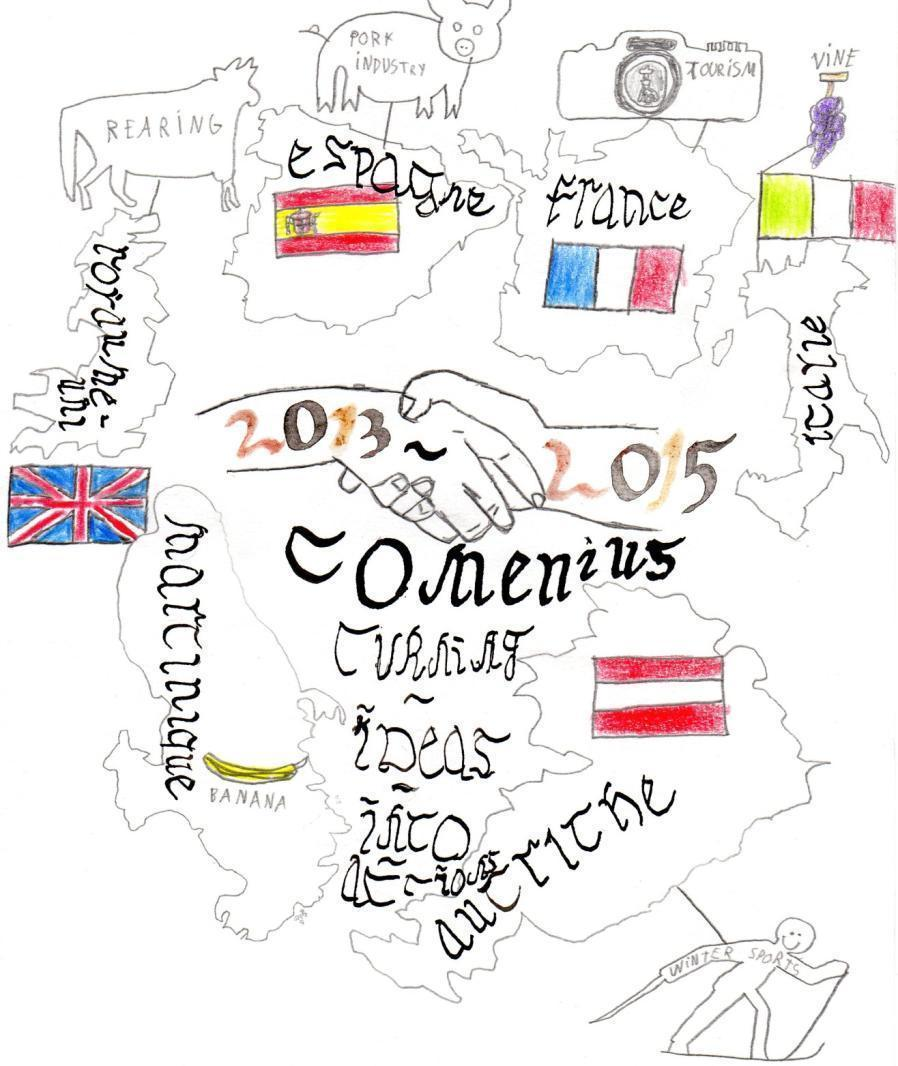 PORK
INDUSTRY
TOURISM
VINE
REARING
espagne
france
royaume-
uni
italie
2013 ~ 2015
comenius
martinique
TURNING
ideas
into
actions
BANANA
autriche
WINTER SPORTS